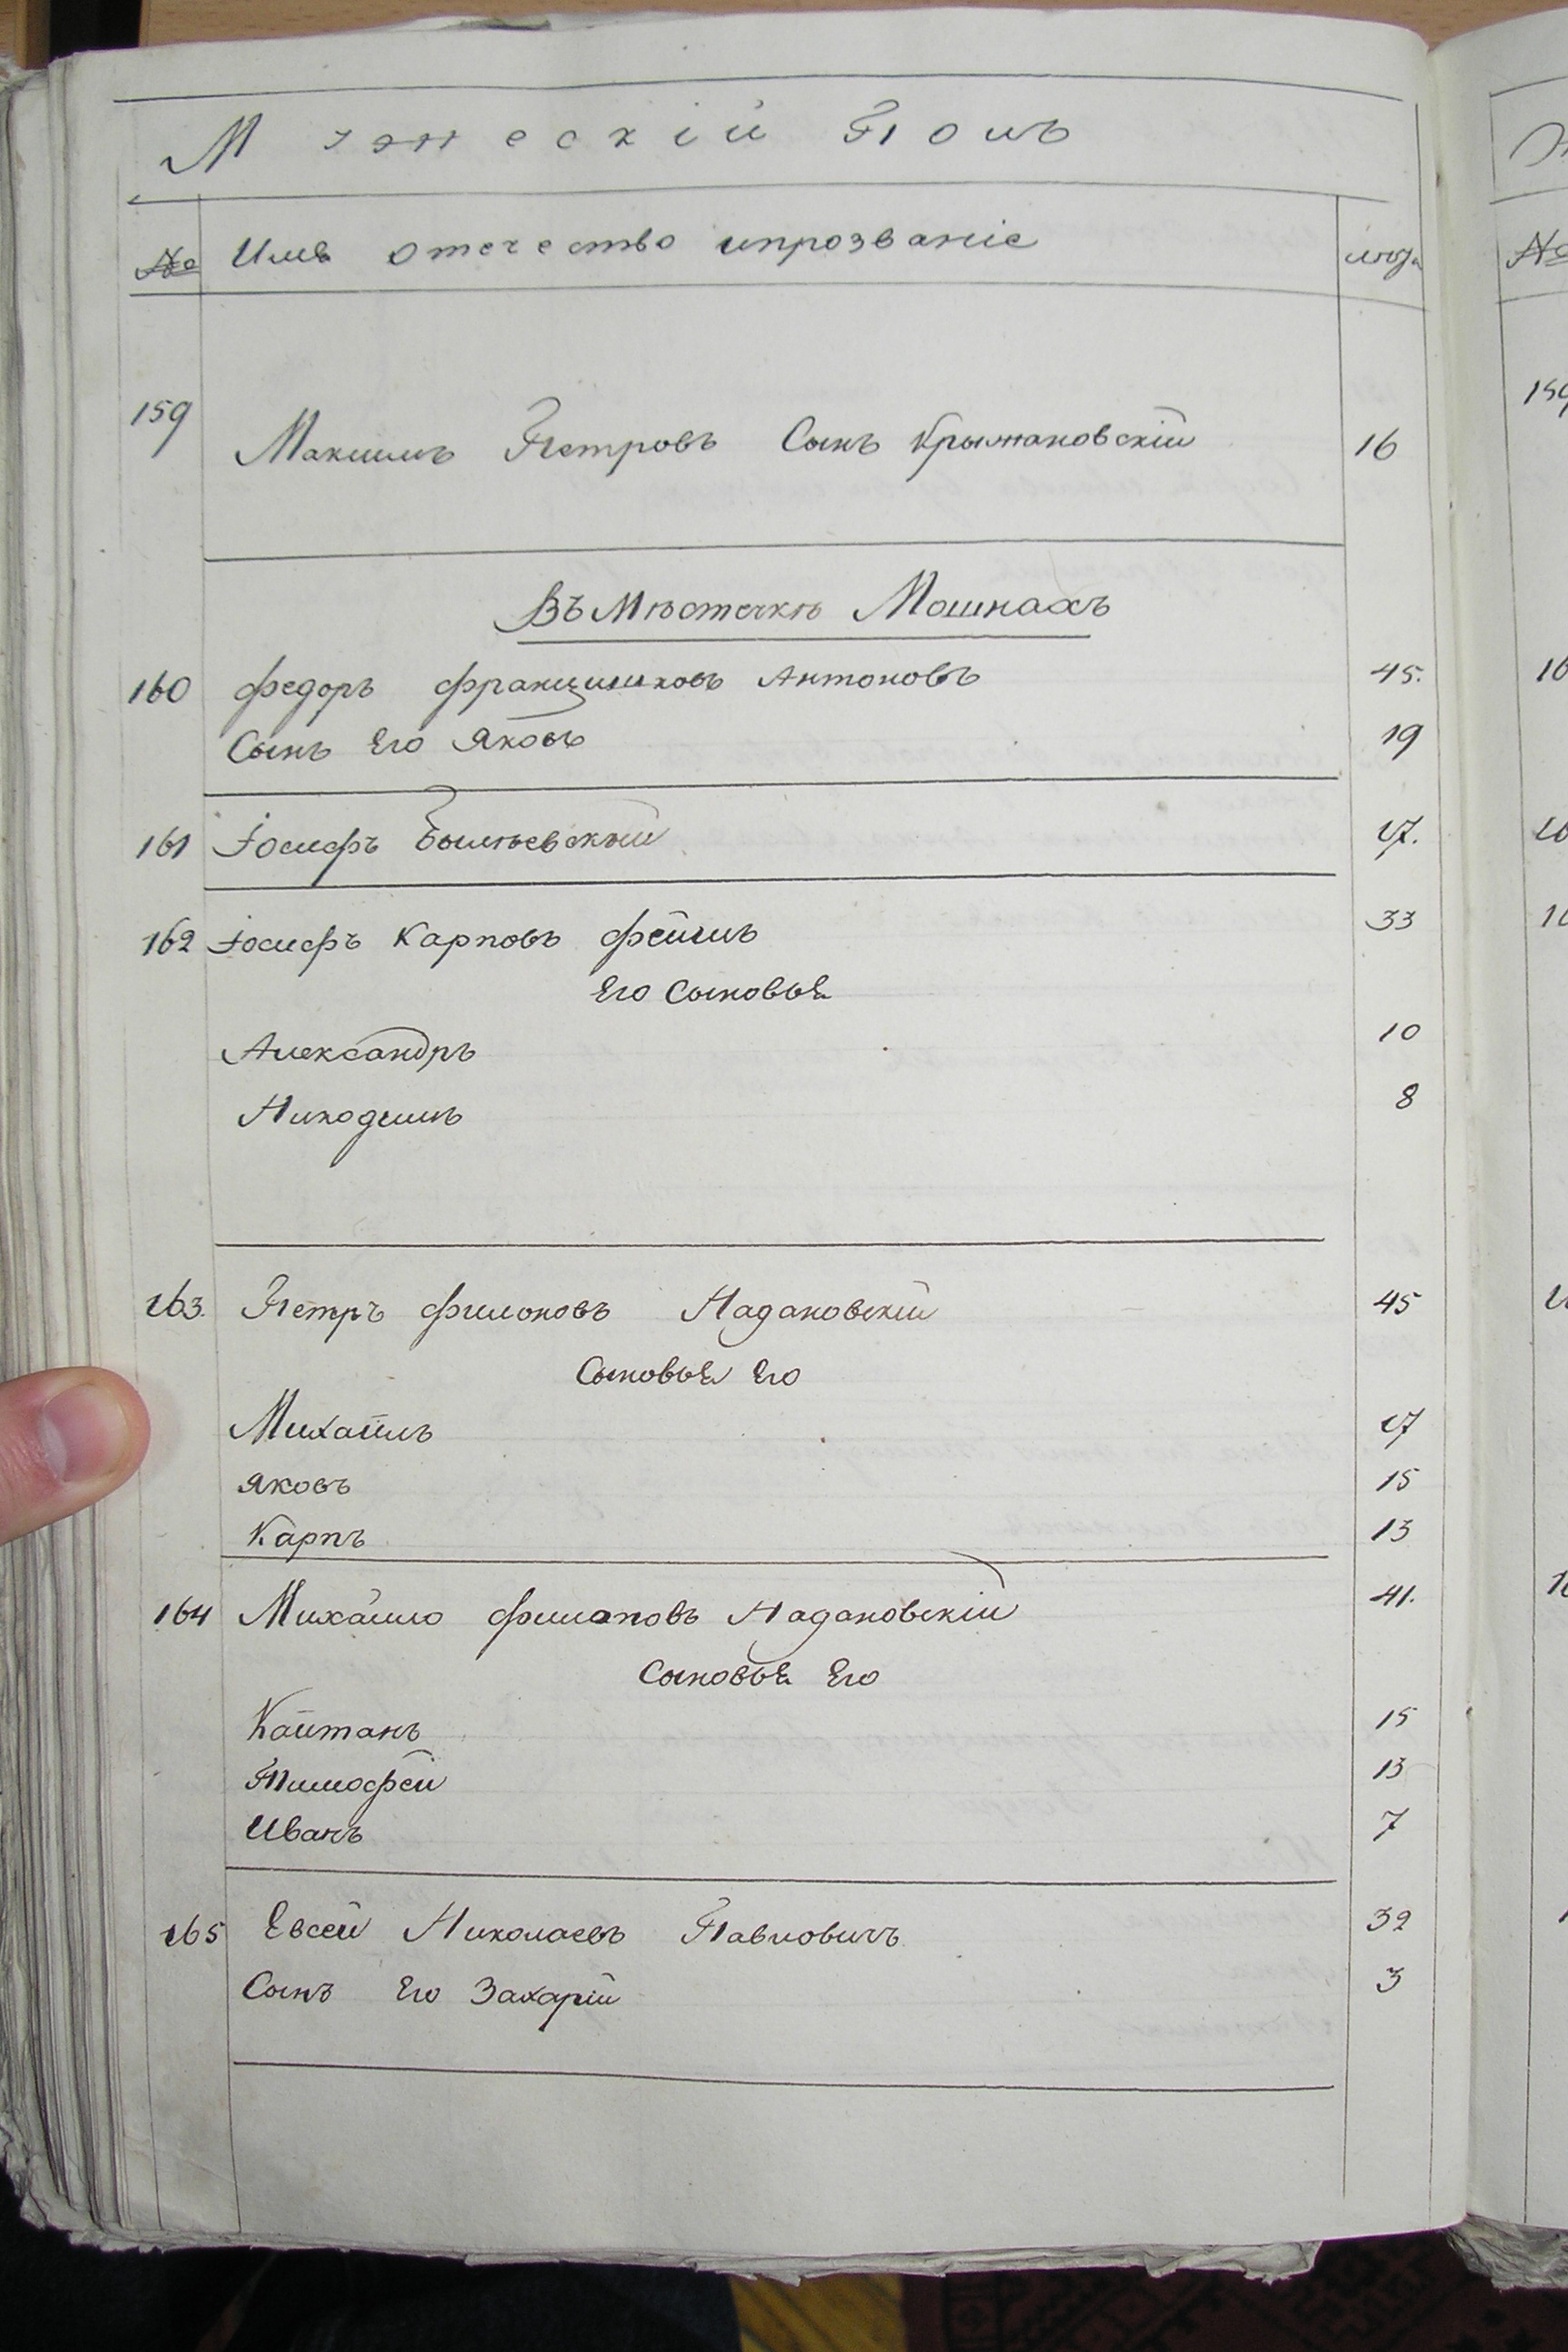 Мужескій Полъ
№ Имя отечество ипрозваніе лѣта №
159 Максимъ Петровъ Сынъ Крыжановскій 16
Въ Мѣстечкѣ Мошнахъ
160 Федоръ Францишковъ Антоновъ 45.
Сынъ Его Яковъ 19
161 Іосифъ 17.
162 Іосифъ Карповъ 33
Его Сыновья
Александръ 10
Никодимъ 8
163. Петръ Филоновъ Надановскій 45
Сыновья Его
Михаилъ 17
Яковъ 15
Карпъ 13
164 Михайло Филоновъ Надановскій 41.
Сыновья Его
Каитанъ 15
Тимофей 13
Иванъ 7
165 Евсей Николаевъ Павловичъ 32
Сынъ Его Захарій 3